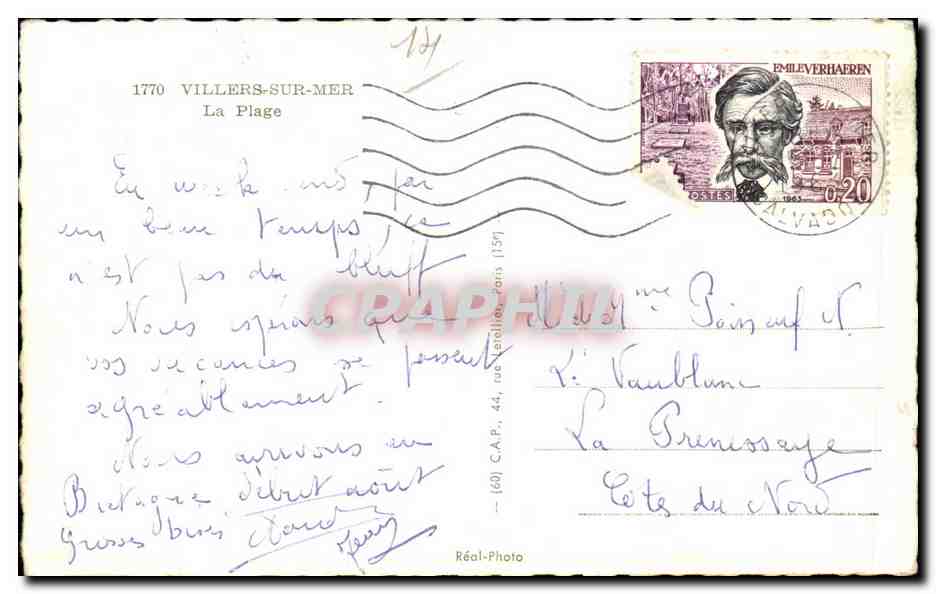 14
1770 VILLERS-SUR-MER
La Plage
EMILE VERHAEREN
POSTES
1963
0,20
CALVADOS
En week end, par
un beau temps, ce
n'est pas du bluff
Nous espérons que
vos vacances se passent
agréablement.
Nous arrivons en
Bretagne début août
Grosses bises
(60) C.A.P., 44, rue Letellier, Paris (15e)
CPAPHIL
M. et Mme
Vaublanc
La Prenessaye
Côtes du Nord
Réal-Photo